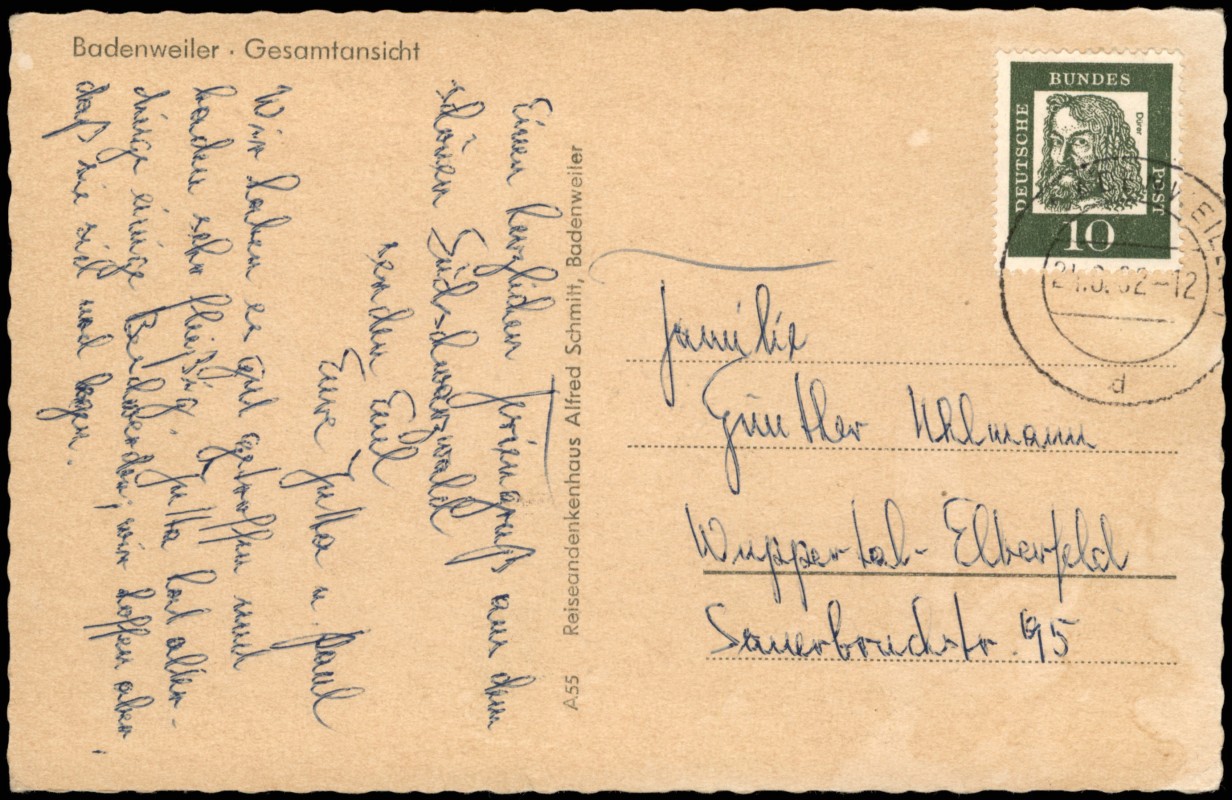 Badenweiler · Gesamtansicht
Einen herzlichen Feriengruß aus dem
schönen Südschwarzwald
senden Euch
Eure Jutta u. Paul
Wir haben es gut getroffen und
baden sehr fleißig. Jutta hat aller-
dings einige Beschwerden, wir hoffen aber,
daß sie sich noch legen.
A55 Reiseandenkenhaus Alfred Schmitt, Badenweiler
DEUTSCHE BUNDES POST
Dürer
10
21.  62-12
d
Familie
Günther Uhlmann
Wuppertal-Elberfeld
Sauerbruchstr. 95